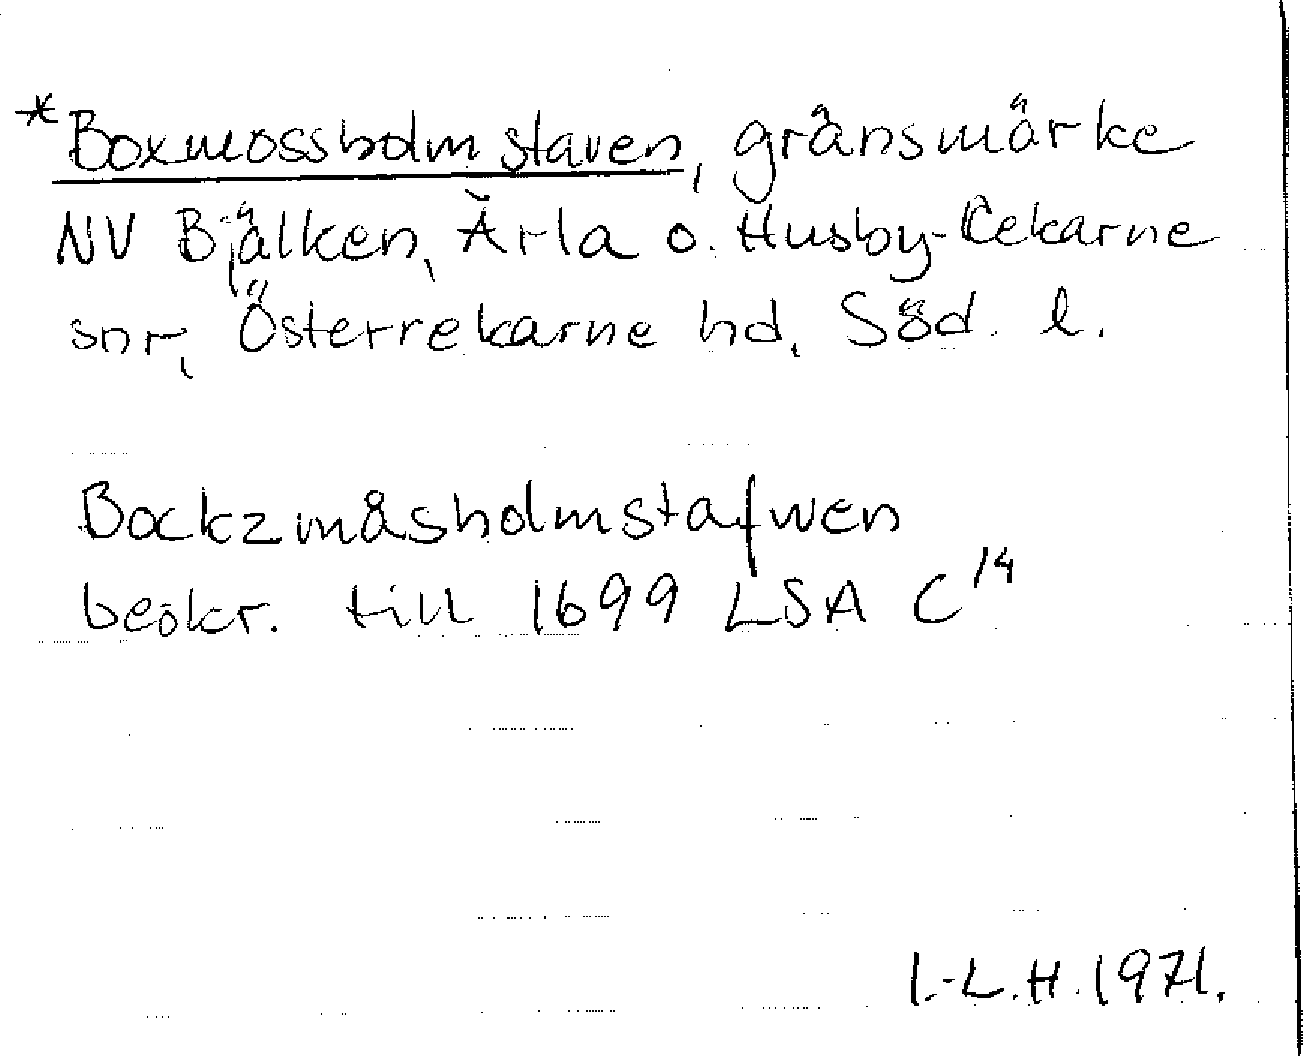 *Boxmossholmstaven, gränsmärke
NV Bjälken, Ärla o. Husby-Rekarne
snr, Österrekarne hd, Söd. l.
Bockzmåsholmstafwen
beskr. till 1699 LSA C 14
I.-L.H. 1971.